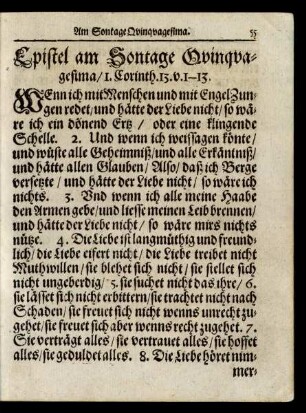 Am Sontage Qvinqvagesima. 55
Epistel am Sontage Qvinqva-
gesima/ 1. Corinth. 13. v. 1-13.
WEnn ich mit Menschen und mit Engel Zun-
gen redet/ und hätte der Liebe nicht/ so wä-
re ich ein dönend Ertz/ oder eine klingende
Schelle. 2. Und wenn ich weissagen könte/
und wüste alle Geheimniß/ und alle Erkäntniß/
und hätte allen Glauben/ Also/ daß ich Berge
versetzte/ und hätte der Liebe nicht/ so wäre ich
nichts. 3. Vnd wenn ich alle meine Haabe
den Armen gebe/ und liesse meinen Leib brennen/
und hätte der Liebe nicht/ so wäre mirs nichts
nütze. 4. Die Liebe ist langmüthig und freund-
lich/ die Liebe eifert nicht/ die Liebe treibet nicht
Muthwillen/ sie blehet sich nicht/ sie stellet sich
nicht ungeberdig/ 5. sie suchet nicht das ihre/ 6.
sie lässet sich nicht erbittern/ sie trachtet nicht nach
Schaden/ sie freuet sich nicht wenns unrecht zu-
gehet/ sie freuet sich aber wenns recht zugehet. 7.
Sie verträgt alles/ sie vertrauet alles/ sie hoffet
alles/ sie geduldet alles. 8. Die Liebe höret nim-
mer-